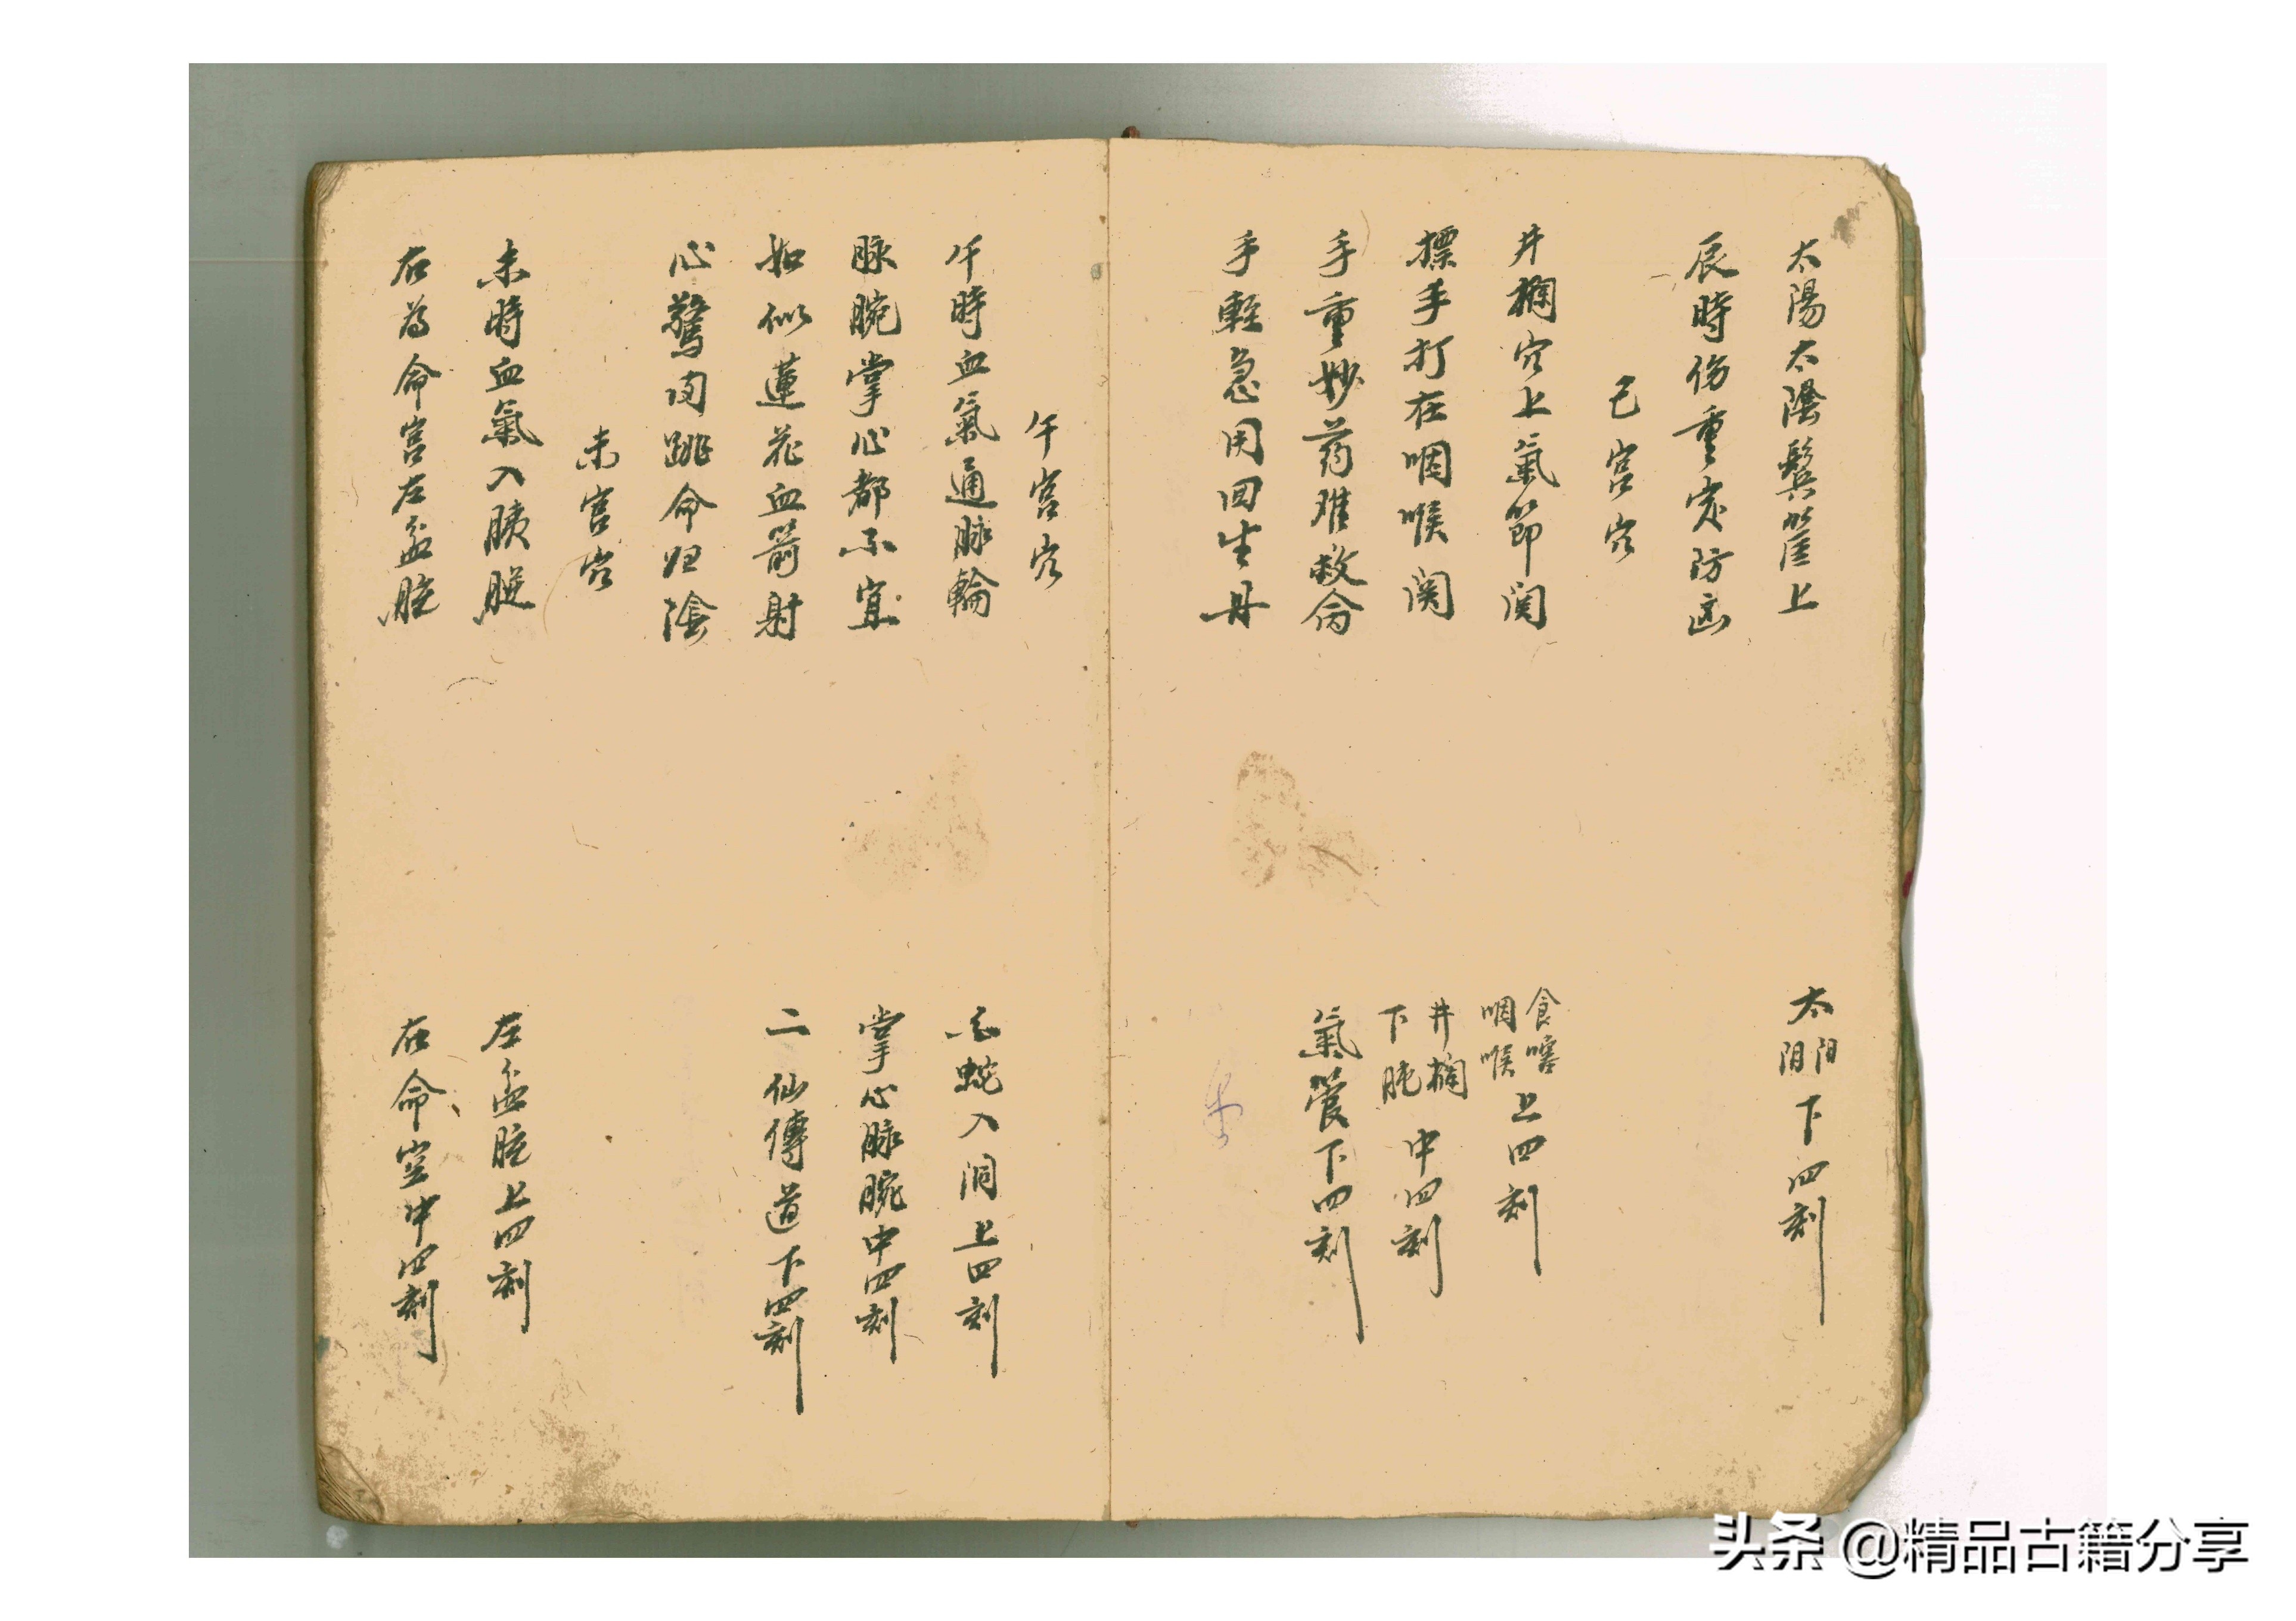 太陽太陰鬓上
辰時伤重定防凶
太阳阴下四刻
巳宮穴
井欄穴上氣節関
標手打在咽喉関
手重妙药难救命
手輕急用回生丹
食嗓咽喉上四刻
井欄下脘中四刻
氣管下四刻
午宮穴
午時血氣通脉輪
脉腕掌心都不宜
如似蓮花血箭射
心驚肉跳命归陰
蛇入洞上四刻
掌心脉腕中四刻
二仙傳道下四刻
未宮穴
未時血氣入腿
右为命宮左盆腔
左盆腔上四刻
右命空中四刻
头条 @精品古籍分享